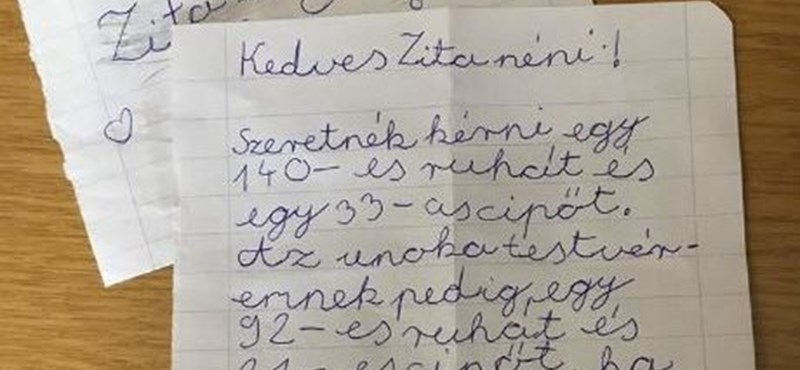 Zita
Kedves Zita néni!
Szeretnék kérni egy
140-es ruhát és
egy 33-as cipőt.
Az unokatestvér-
emnek pedig, egy
92-es ruhát és
cipőt, ha